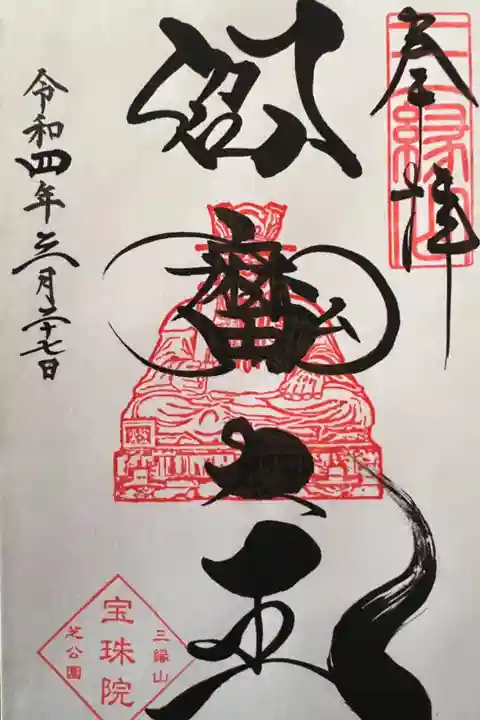 奉拝
三縁山
閻魔大王
令和四年三月二十七日
三縁山
宝珠院
芝公園